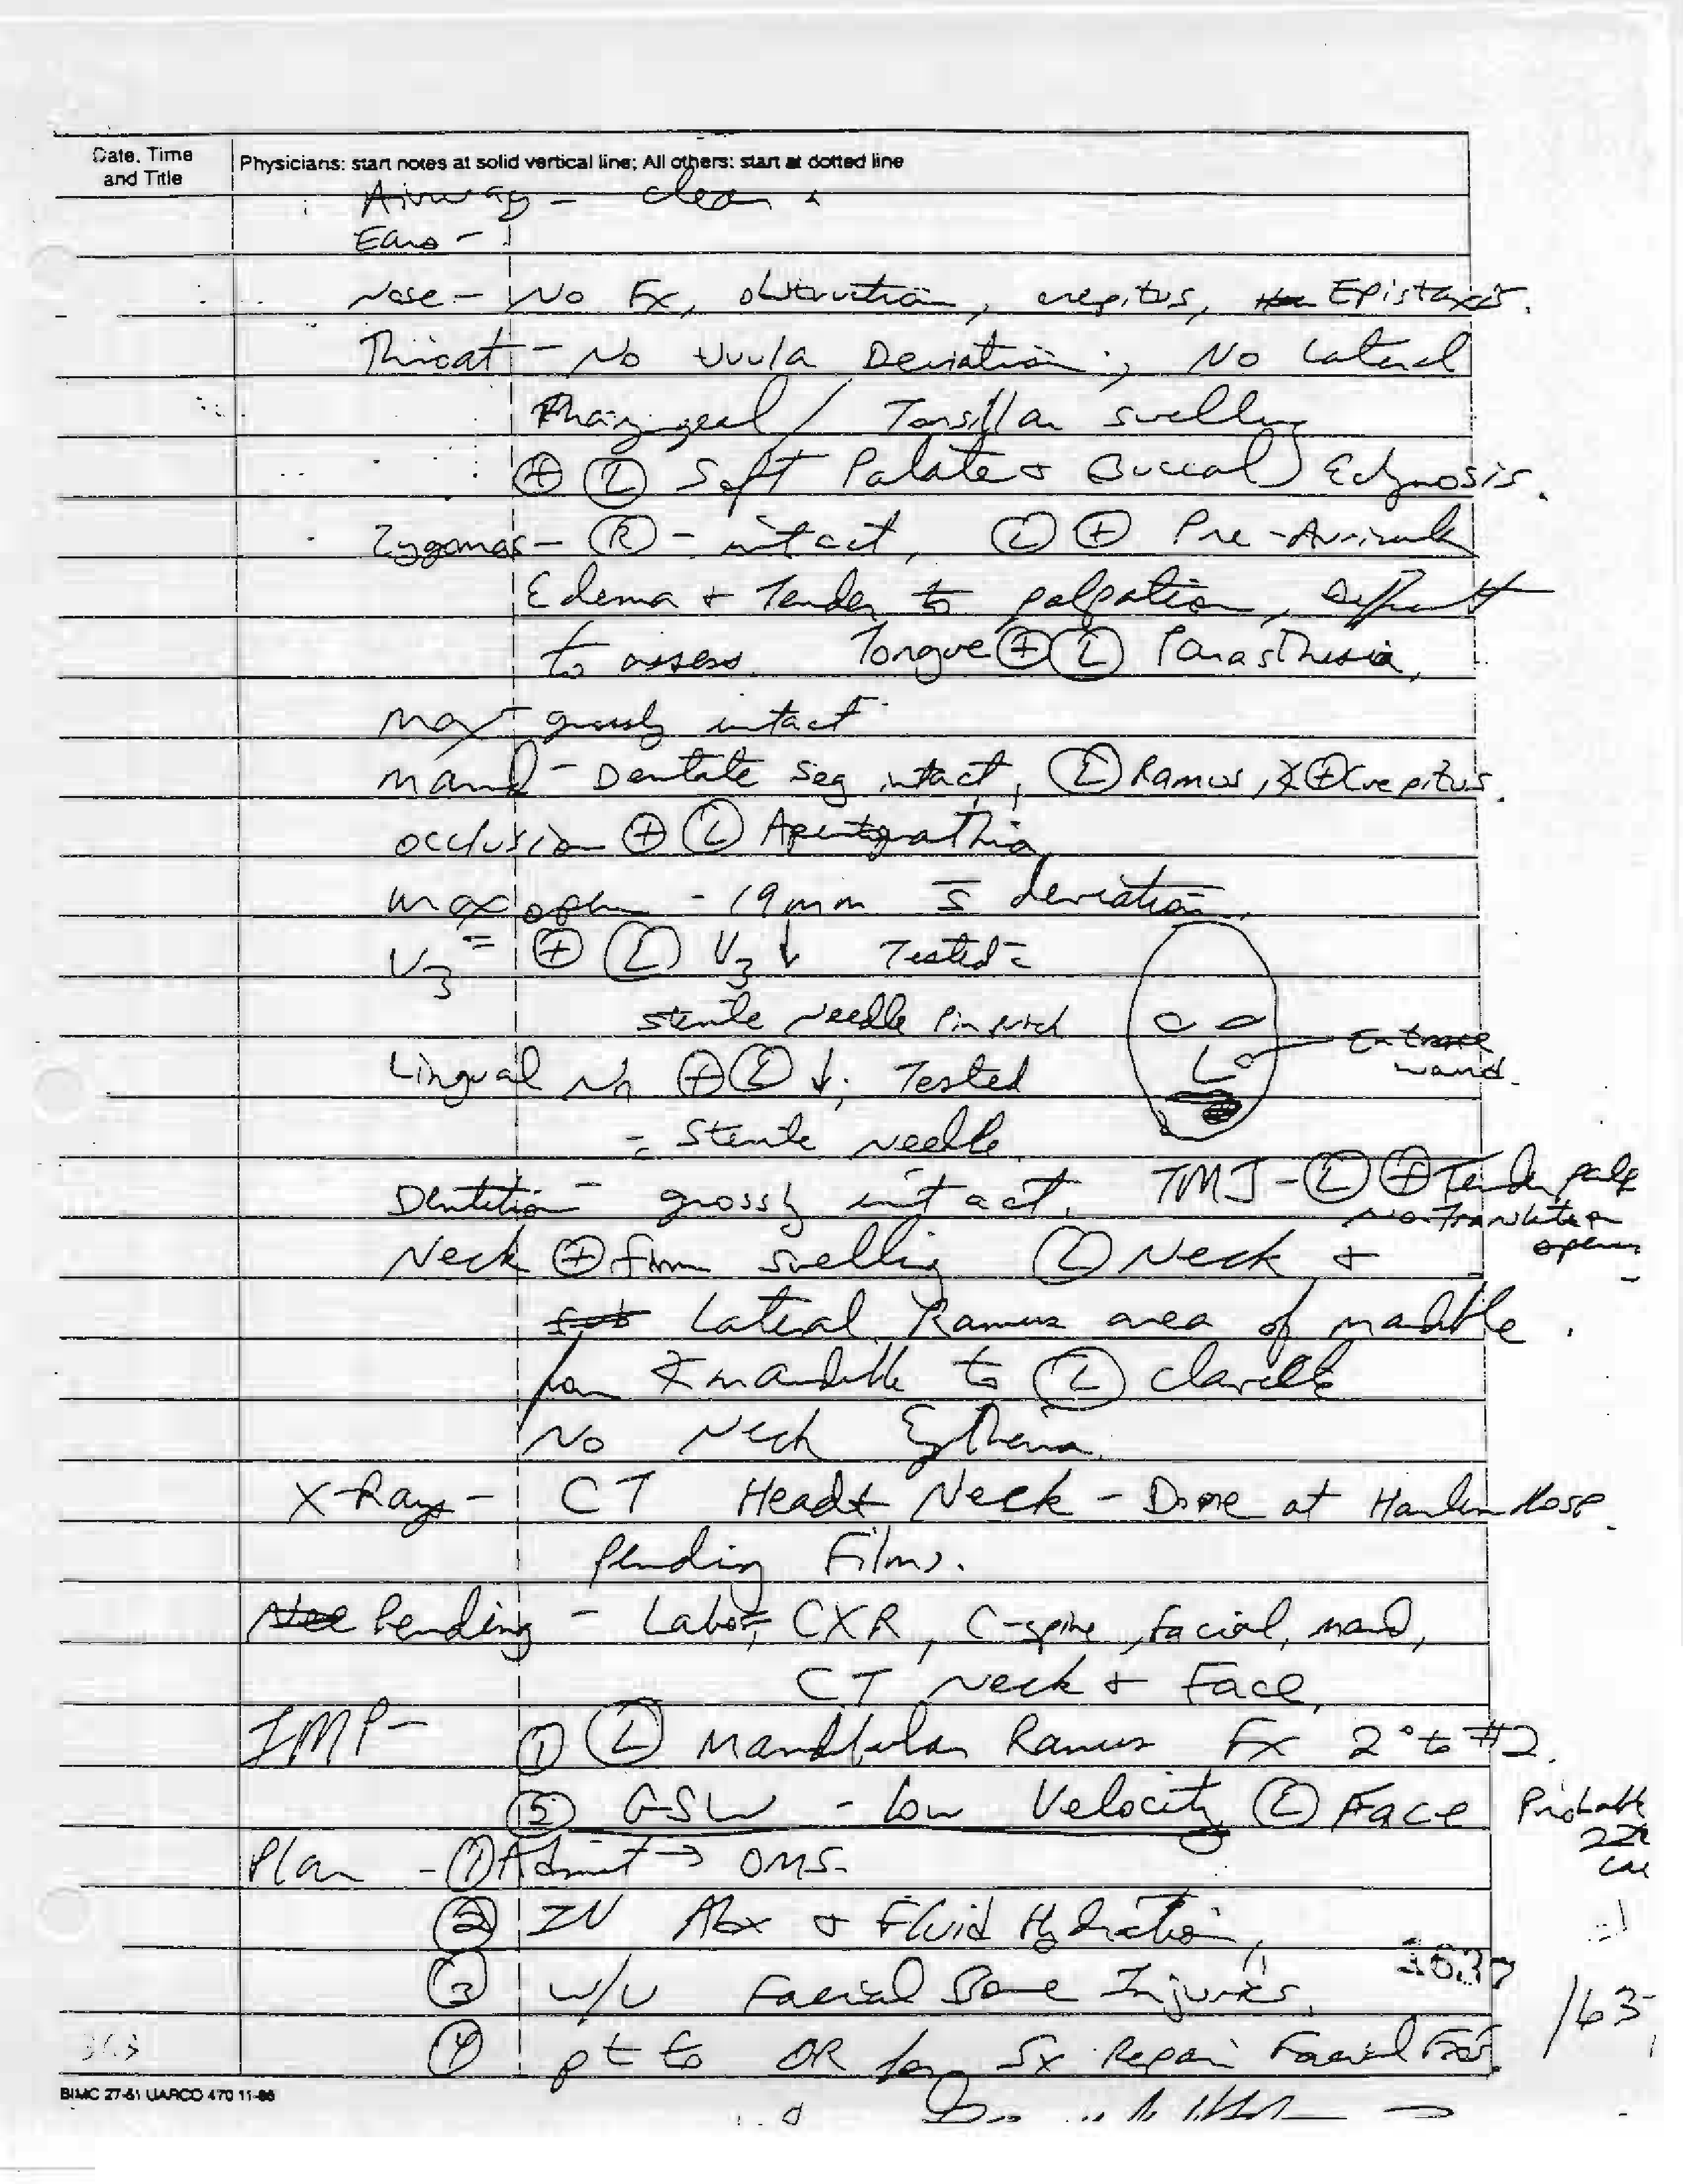 Date, Time and Title
Physicians: start notes at solid vertical line; All others: start at dotted line
Airway - clear
Ears -
Nose - No Fx, obstruction, crepitus, Epistaxis.
Throat - No Uvula Deviation; No Lateral
Pharyngeal / Tonsillar swelling
⊕ Ⓛ Soft Palate & Buccal Echymosis.
Zygomas - Ⓡ - intact, Ⓛ ⊕ Pre-Auricular
Edema & Tender to palpation, Difficult
to assess. Tongue ⊕ Ⓛ Parasthesia,
Max - grossly intact
Mand - Dentate Seg intact, Ⓛ Ramus, ⊕ Crepitus.
Occlusion ⊕ Ⓛ Apertognathia
max open - 19mm s̄ deviation.
V3 = ⊕ Ⓛ V3 ↓ Tested c̄
sterile Needle Pin prick
Entrance
wound.
Lingual N ⊕ Ⓛ ↓; Tested
c̄ Sterile Needle.
Dentition - grossly intact. TMJ - Ⓛ ⊕ Tender palp
No Translation
opening
Neck ⊕ firm swelling Ⓛ Neck &
Lateral Ramus area of mandible.
from mandible to Ⓛ clavicle
No Neck Erythema.
X-Rays - CT Head & Neck - Done at Harlem Hosp.
Pending Films.
Pending - Labs, CXR, C-spine, facial, mand,
CT Neck & Face,
IMP - ① Ⓛ Mandibular Ramus Fx 2° to #2.
② GSW - Low Velocity Ⓛ Face Probable
22
cal
Plan - ① Admit → OMS.
② IV Abx & Fluid Hydration,
③ w/u Facial Bone Injuries.
1637
163
④ pt to OR for Sx Repair Facial Fxs.
363
BIMC 27-51 UARCO 470 11-86